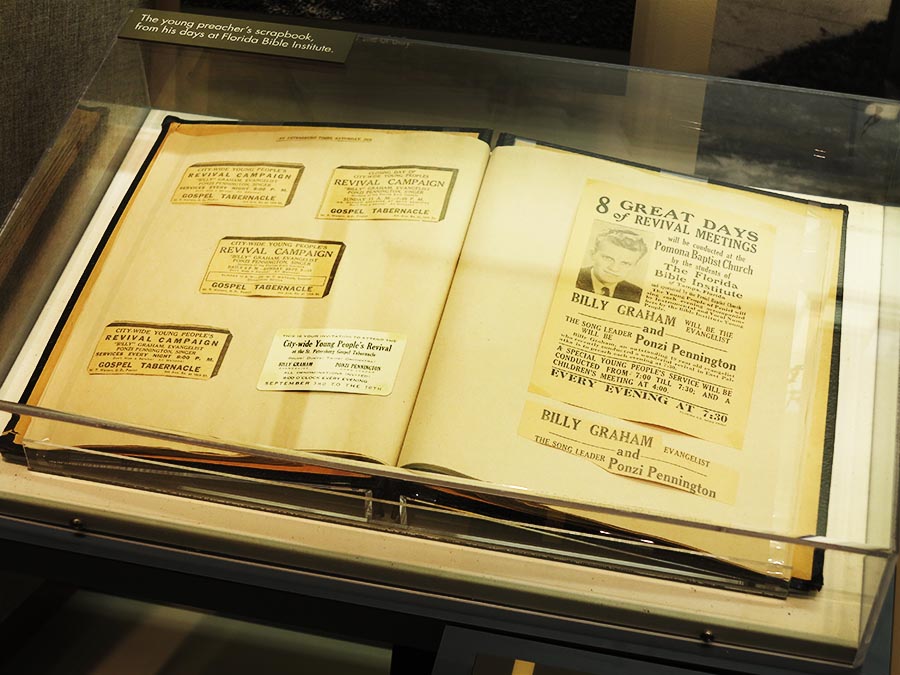 The young preacher's scrapbook,
from his days at Florida Bible Institute.
CITY-WIDE YOUNG PEOPLE'S
REVIVAL CAMPAIGN
"BILLY" GRAHAM, EVANGELIST
PONZI PENNINGTON, SINGER
SERVICES EVERY NIGHT 8:00 P. M.
GOSPEL TABERNACLE
CLOSING DAY OF
CITY-WIDE YOUNG PEOPLES
REVIVAL CAMPAIGN
"BILLY" GRAHAM, EVANGELIST
PONZI PENNINGTON, SINGER
GOSPEL TABERNACLE
CITY-WIDE YOUNG PEOPLE'S
REVIVAL CAMPAIGN
"BILLY" GRAHAM, EVANGELIST
PONZI PENNINGTON, SINGER
GOSPEL TABERNACLE
CITY-WIDE YOUNG PEOPLE'S
REVIVAL CAMPAIGN
"BILLY" GRAHAM, EVANGELIST
PONZI PENNINGTON, SINGER
SERVICES EVERY NIGHT 8:00 P. M.
GOSPEL TABERNACLE
THIS IS YOUR INVITATION TO ATTEND THE
City-wide Young People's Revival
at the St. Petersburg Gospel Tabernacle
BILLY GRAHAM PONZI PENNINGTON
ALL DENOMINATIONS INVITED
8:00 O'CLOCK EVERY EVENING
SEPTEMBER 3RD TO THE 10TH
8 GREAT DAYS
of REVIVAL MEETINGS
will be conducted at the
Pomona Baptist Church
by the students of
The Florida
Bible Institute
BILLY GRAHAM WILL BE THE
EVANGELIST
and
THE SONG LEADER
WILL BE Ponzi Pennington
A SPECIAL YOUNG PEOPLE'S SERVICE WILL BE
CONDUCTED FROM 7:00 TILL 7:30; AND A
CHILDREN'S MEETING AT 4:00.
EVERY EVENING AT 7:30
BILLY GRAHAM EVANGELIST
and
THE SONG LEADER Ponzi Pennington